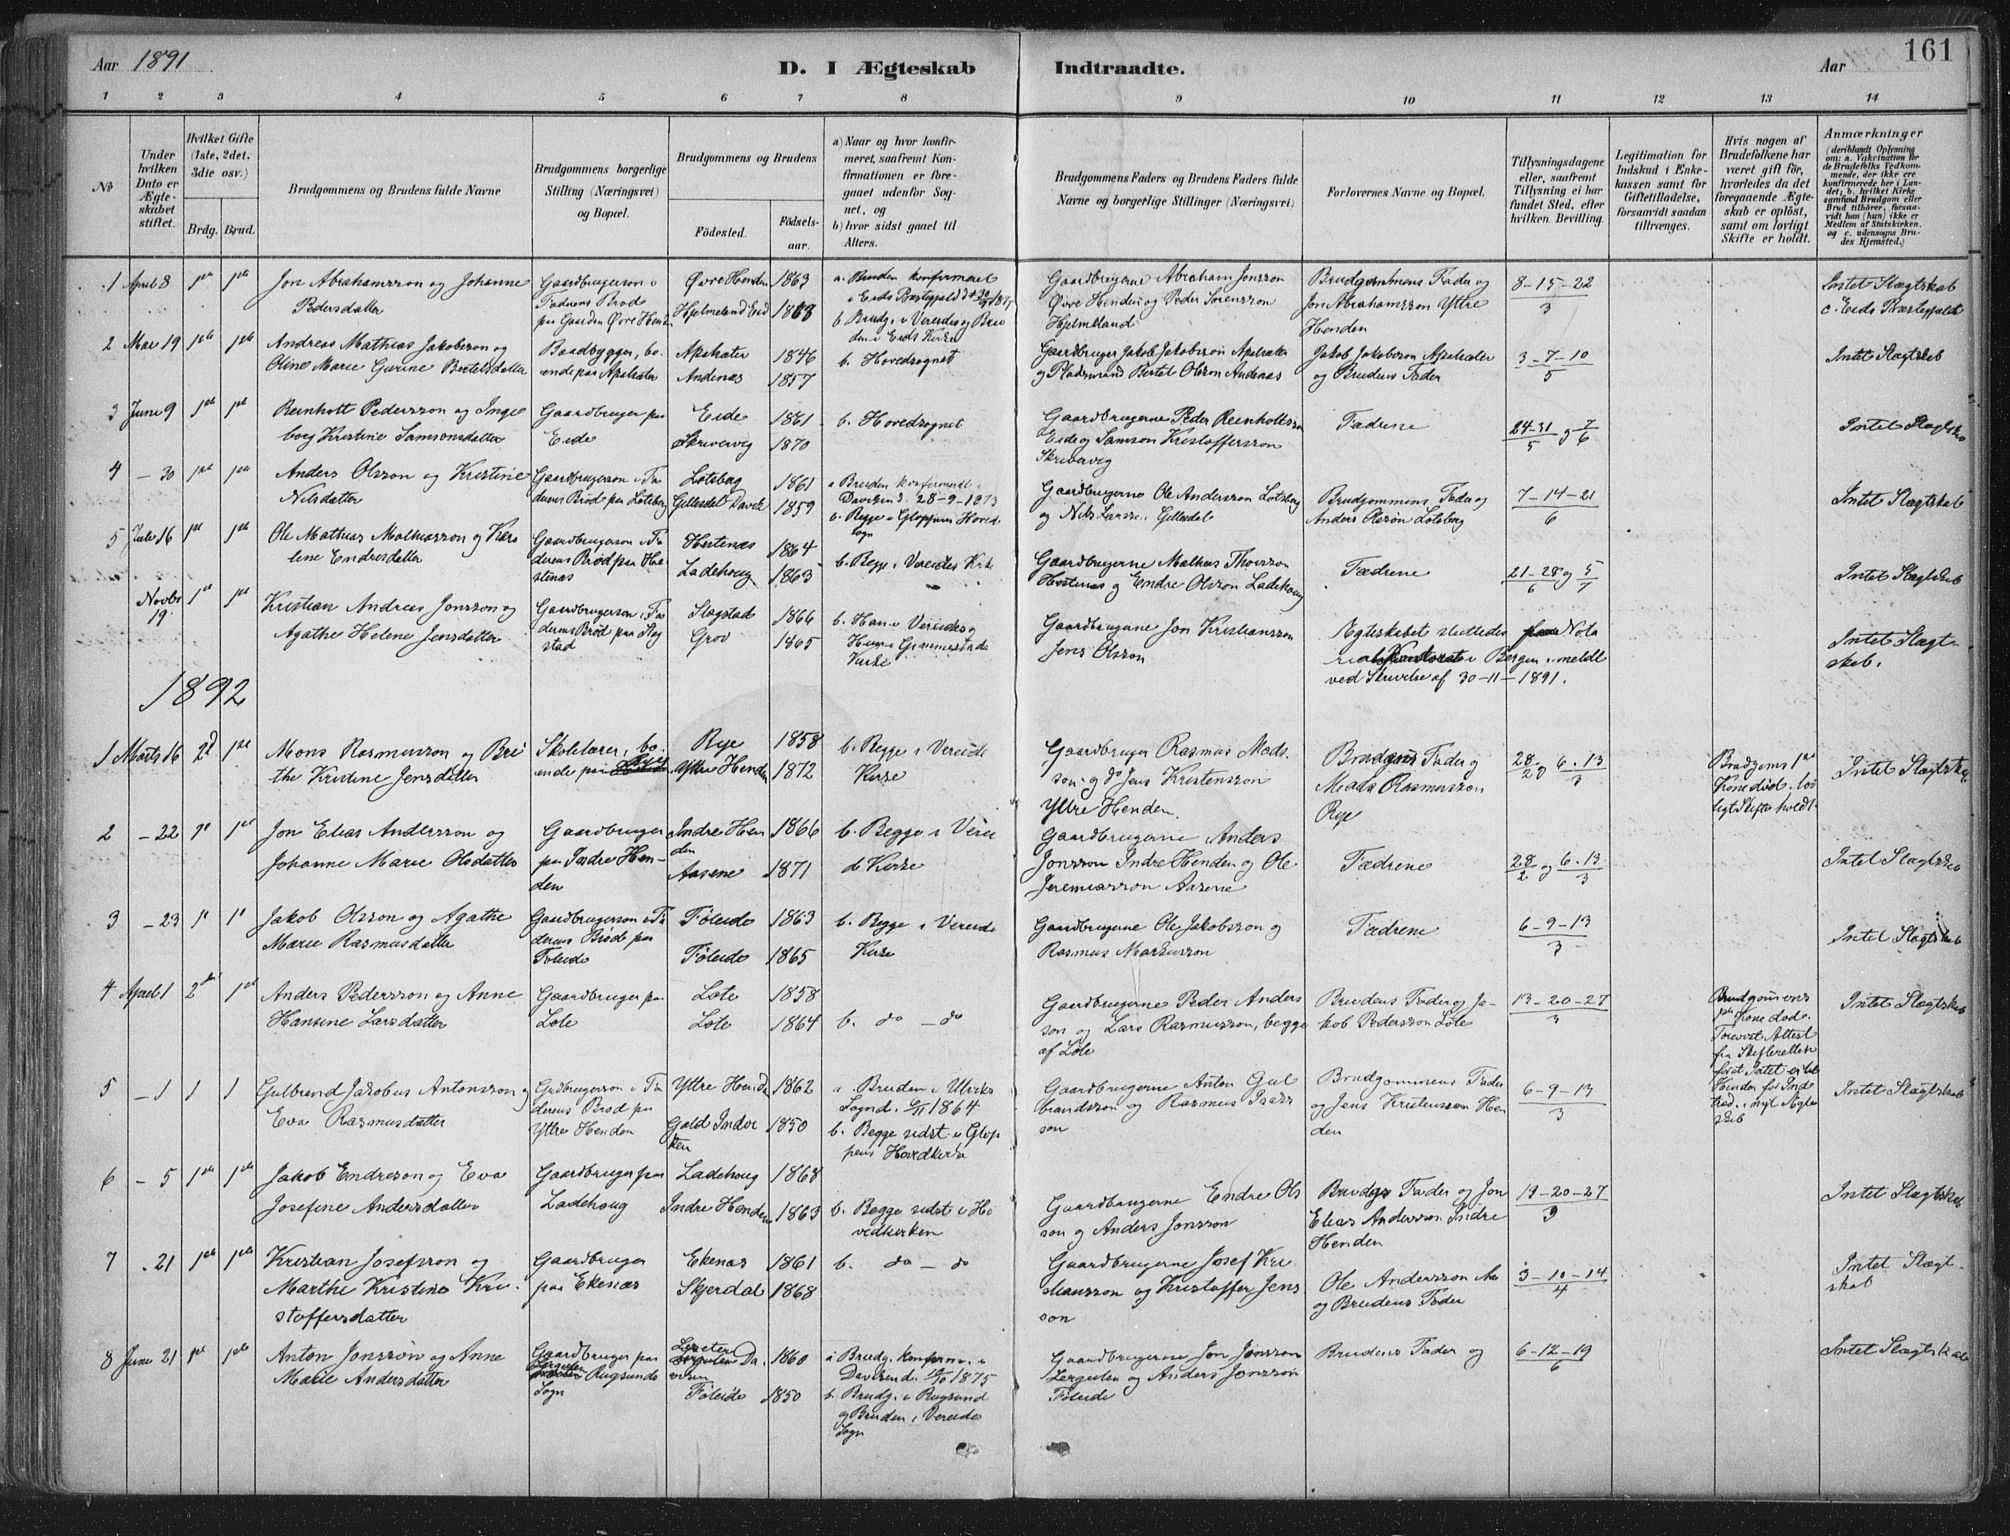 161
Aar 1891
D. I Ægteskab Indtraadte.
Aar
1 2 3 4 5 6 7 8 9 10 11 12 13 14
No
Under hvilken Dato er Ægteskabet stiftet.
Hvilket Gifte (1ste, 2det, 3die osv.)
Brdg. Brud.
Brudgommens og Brudens fulde Navne
Brudgommens borgerlige Stilling (Næringsvei) og Bopæl.
Brudgommens og Brudens
Födested.
Födselsaar.
a) Naar og hvor konfirmeret, saafremt Konfirmationen er foregaaet udenfor Sognet, og
b) hvor sidst gaaet til Alters.
Brudgommens Faders og Brudens Faders fulde Navne og borgerlige Stillinger (Næringsvei)
Forlovernes Navne og Bopæl.
Tillysningsdagene eller, saafremt Tillysning ei har fundet Sted, efter hvilken Bevilling.
Legitimation for Indskud i Enkekassen samt for Giftetilladelse, forsaavidt saadan tiltrænges.
Hvis nogen af Brudefolkene har været gift för, hvorledes da det foregaaende Ægteskab er oplöst, samt om lovligt Skifte er holdt.
Anmærkninger
(deriblandt Oplysning om: a. Vakcination for de Brudefolks Vedkommende, der ikke ere konfirmerede her i Landet; b. hvilket Kirkesamfund Brudgom eller Brud tilhörer, forsaavidt han (hun) ikke er Medlem af Statskirken, og c. udensogns Brudes Hjemsted.)
1 April 8 1ste 1ste Jon Abrahamsson og Johanne Pedersdatter
Gaardbrugerson i Faderens Brød paa Gaarden Øvre Henden
Øvre Henden 1863
Hjelmeland Eid 1863
a. Bruden konfirmeret i Eids Præstegjeld
b. Brudg. i Vereide og Bruden i Eids Kirke
Gaardbrugerne Abraham Jonsson Øvre Henden og Peder Sørensson Hjelmeland
Brudgommens Fader og Jon Abrahamsson Yttre Henden
8-15-22/3
Intet Slægtskab
c. Eids Præstegjeld
2 Mai 19 1ste 1ste Andreas Mathias Jakobsson og Oline Marie Gurine Bertelsdatter
Baadbygger, boende paa Apalsæter
Apalsæter 1846
Andenæs 1857
b. Hovedsognet
Gaardbruger Jakob Jakobsson Apalsæter og Pladsmand Bertel Olsson Andenæs
Jakob Jakobsson Apalsæter og Brudens Fader
3-7-10/5
Intet Slægtskab
3 June 9 1ste 1ste Reinholt Pedersson og Ingeborg Kristine Samsonsdatter
Gaardbruger paa Eide
Eide 1861
Skrivervig 1870
b. Hovedsognet
Gaardbrugerne Peder Reinholtsson Eide og Samson Kristoffersson Skrivervig
Fædrene
24-31/5 og 7/6
Intet Slægtskab
4 - 30 1ste 1ste Anders Olsson og Kristine Nilsdatter
Gaardbrugerson i Faderens Brød paa Lotsberg
Lotsberg 1861
Gillesdal Davik 1859
a Bruden konfirmeret i Daviken d. 28-9-1873
b. Begge i Gloppens Hovedsogn
Gaardbrugerne Ole Andersson Lotsberg og Nils Larsson Gillesdal
Brudgommens Fader og Anders Olsson Lotsberg
7-14-21/6
Intet Slægtskab
5 Juli 16 1ste 1ste Ole Mathias Mathiasson og Karoline Endresdatter
Gaardbrugerson i Faderens Brød paa Hestenæs
Hestenæs 1864
Ladehoug 1863
b. Begge i Vereides Kirke
Gaardbrugerne Mathias Thorsson Hestenæs og Endre Olsson Ladehoug
Fædrene
21-28/6 og 5/7
Intet Slægtskab
Novbr 19. 1ste 1ste Kristian Andreas Jonsson og Agathe Helene Jensdatter
Gaardbrugerson i Faderens Brød paa Slagstad
Slagstad 1866
Grov 1865
b. Han i Vereides og Hun i Gimmestads Kirke
Gaardbrugerne Jon Kristiansson Jens Olsson
Ægteskabet sluttedes Notarialkontoret i Bergen i meldt ved Skrivelse af 30-11-1891.
Intet Slægtskab.
1892
1 Marts 16 2d 1ste Mons Rasmusson og Brithe Kristine Jensdatter
Skolelærer, boende paa Rye
Rye 1858
Yttre Henden 1872
b. Begge i Vereide Kirke
Gaardbruger Rasmus Madsson og do Jens Kristensson Yttre Henden.
Brudgoms Fader og Mads Rasmusson Rye
28/2 og 6.13/3
Brudgoms 1ste Kone død. Lovligt Skifte holdt.
Intet Slægtskab
2 - 22 1ste 1ste Jon Elias Andersson og Johanne Marie Olsdatter
Gaardbruger paa Indre Henden
Indre Henden 1866
Aasene 1871
b. Begge i Vereide Kirke
Gaardbrugerne Anders Jonsson Indre Henden og Ole Jeremiasson Aasene
Fædrene
28/2 og 6.13/3
Intet Slægtskab
3 - 23 1ste 1ste Jakob Olsson og Agathe Marie Rasmusdatter
Gaardbrugerson i Faderens Brød paa Føleide
Føleide 1863
Føleide 1865
b. Begge i Vereide Kirke
Gaardbrugerne Ole Jakobsson og Rasmus Markusson
Fædrene
6-9-13/3
Intet Slægtskab
4 April 1 2den 1ste Anders Pedersson og Anne Hansine Larsdatter
Gaardbruger paa Lote
Lote 1858
Lote 1864
b. do - do
Gaardbrugerne Peder Andersson og Lars Rasmusson, begge af Lote
Brudens Fader og Jakob Pedersson Lote
13-20-27/3
Brudgommens Kone død. Forevist Attest fra Skifteretten for at Intet er til Hinder for Indtræd. i nyt Ægteskab
Intet Slægtskab
5 - 1 1 1 Gulbrand Jakobus Antonsson og Eva Rasmusdatter
Grdbrugerson i Faderens Brød paa Yttre Henden
Yttre Henden 1862
Gald Indviken 1850
a. Bruden i Utvikes Sogn d. 1864
b. Begge sidst i Gloppens Hovedkirke
Gaardbrugerne Anton Gulbrandsson og Rasmus Isaksson
Brudgommens Fader og Jens Kristensson Henden
6-9-13/3
Intet Slægtskab
6 - 5 1ste 1ste Jakob Endreson og Eva Josefine Andersdatter
Gaardbruger paa Ladehoug
Ladehoug 1868
Indre Henden 1863
b. Begge sidst i Hovedkirken
Gaardbrugerne Endre Olsson og Anders Jonsson
Brudgs Fader og Jon Elias Andersson Indre Henden
13-20-27/3
Intet Slægtskab
7 - 21 1ste 1ste Kristian Josefson og Marthe Kristine Kristoffersdatter
Gaardbruger paa Ekenæs
Ekenæs 1861
Skjerdal 1868
b. do - do
Gaardbrugerne Josef Kristiansson og Kristoffer Jensson
Ole Andersson og Brudens Fader
3-10-14/4
Intet Slægtskab
8 June 21 1ste 1ste Anton Jonsson og Anne Marie Andersdatter
Gaardbruger paa Lergulen Rugsunds Sogn
Daviken 1860
Føleide 1850
a Brudg. konfirm. i Daviken d. 1875
b. Brudg. i Rugsund og Bruden i Vereides Sogn
Gaardbrugerne Jon Jonsson Lergulen og Anders Jonsson Føleide
Brudens Fader og
6-12-19/6
Intet Slægtskab